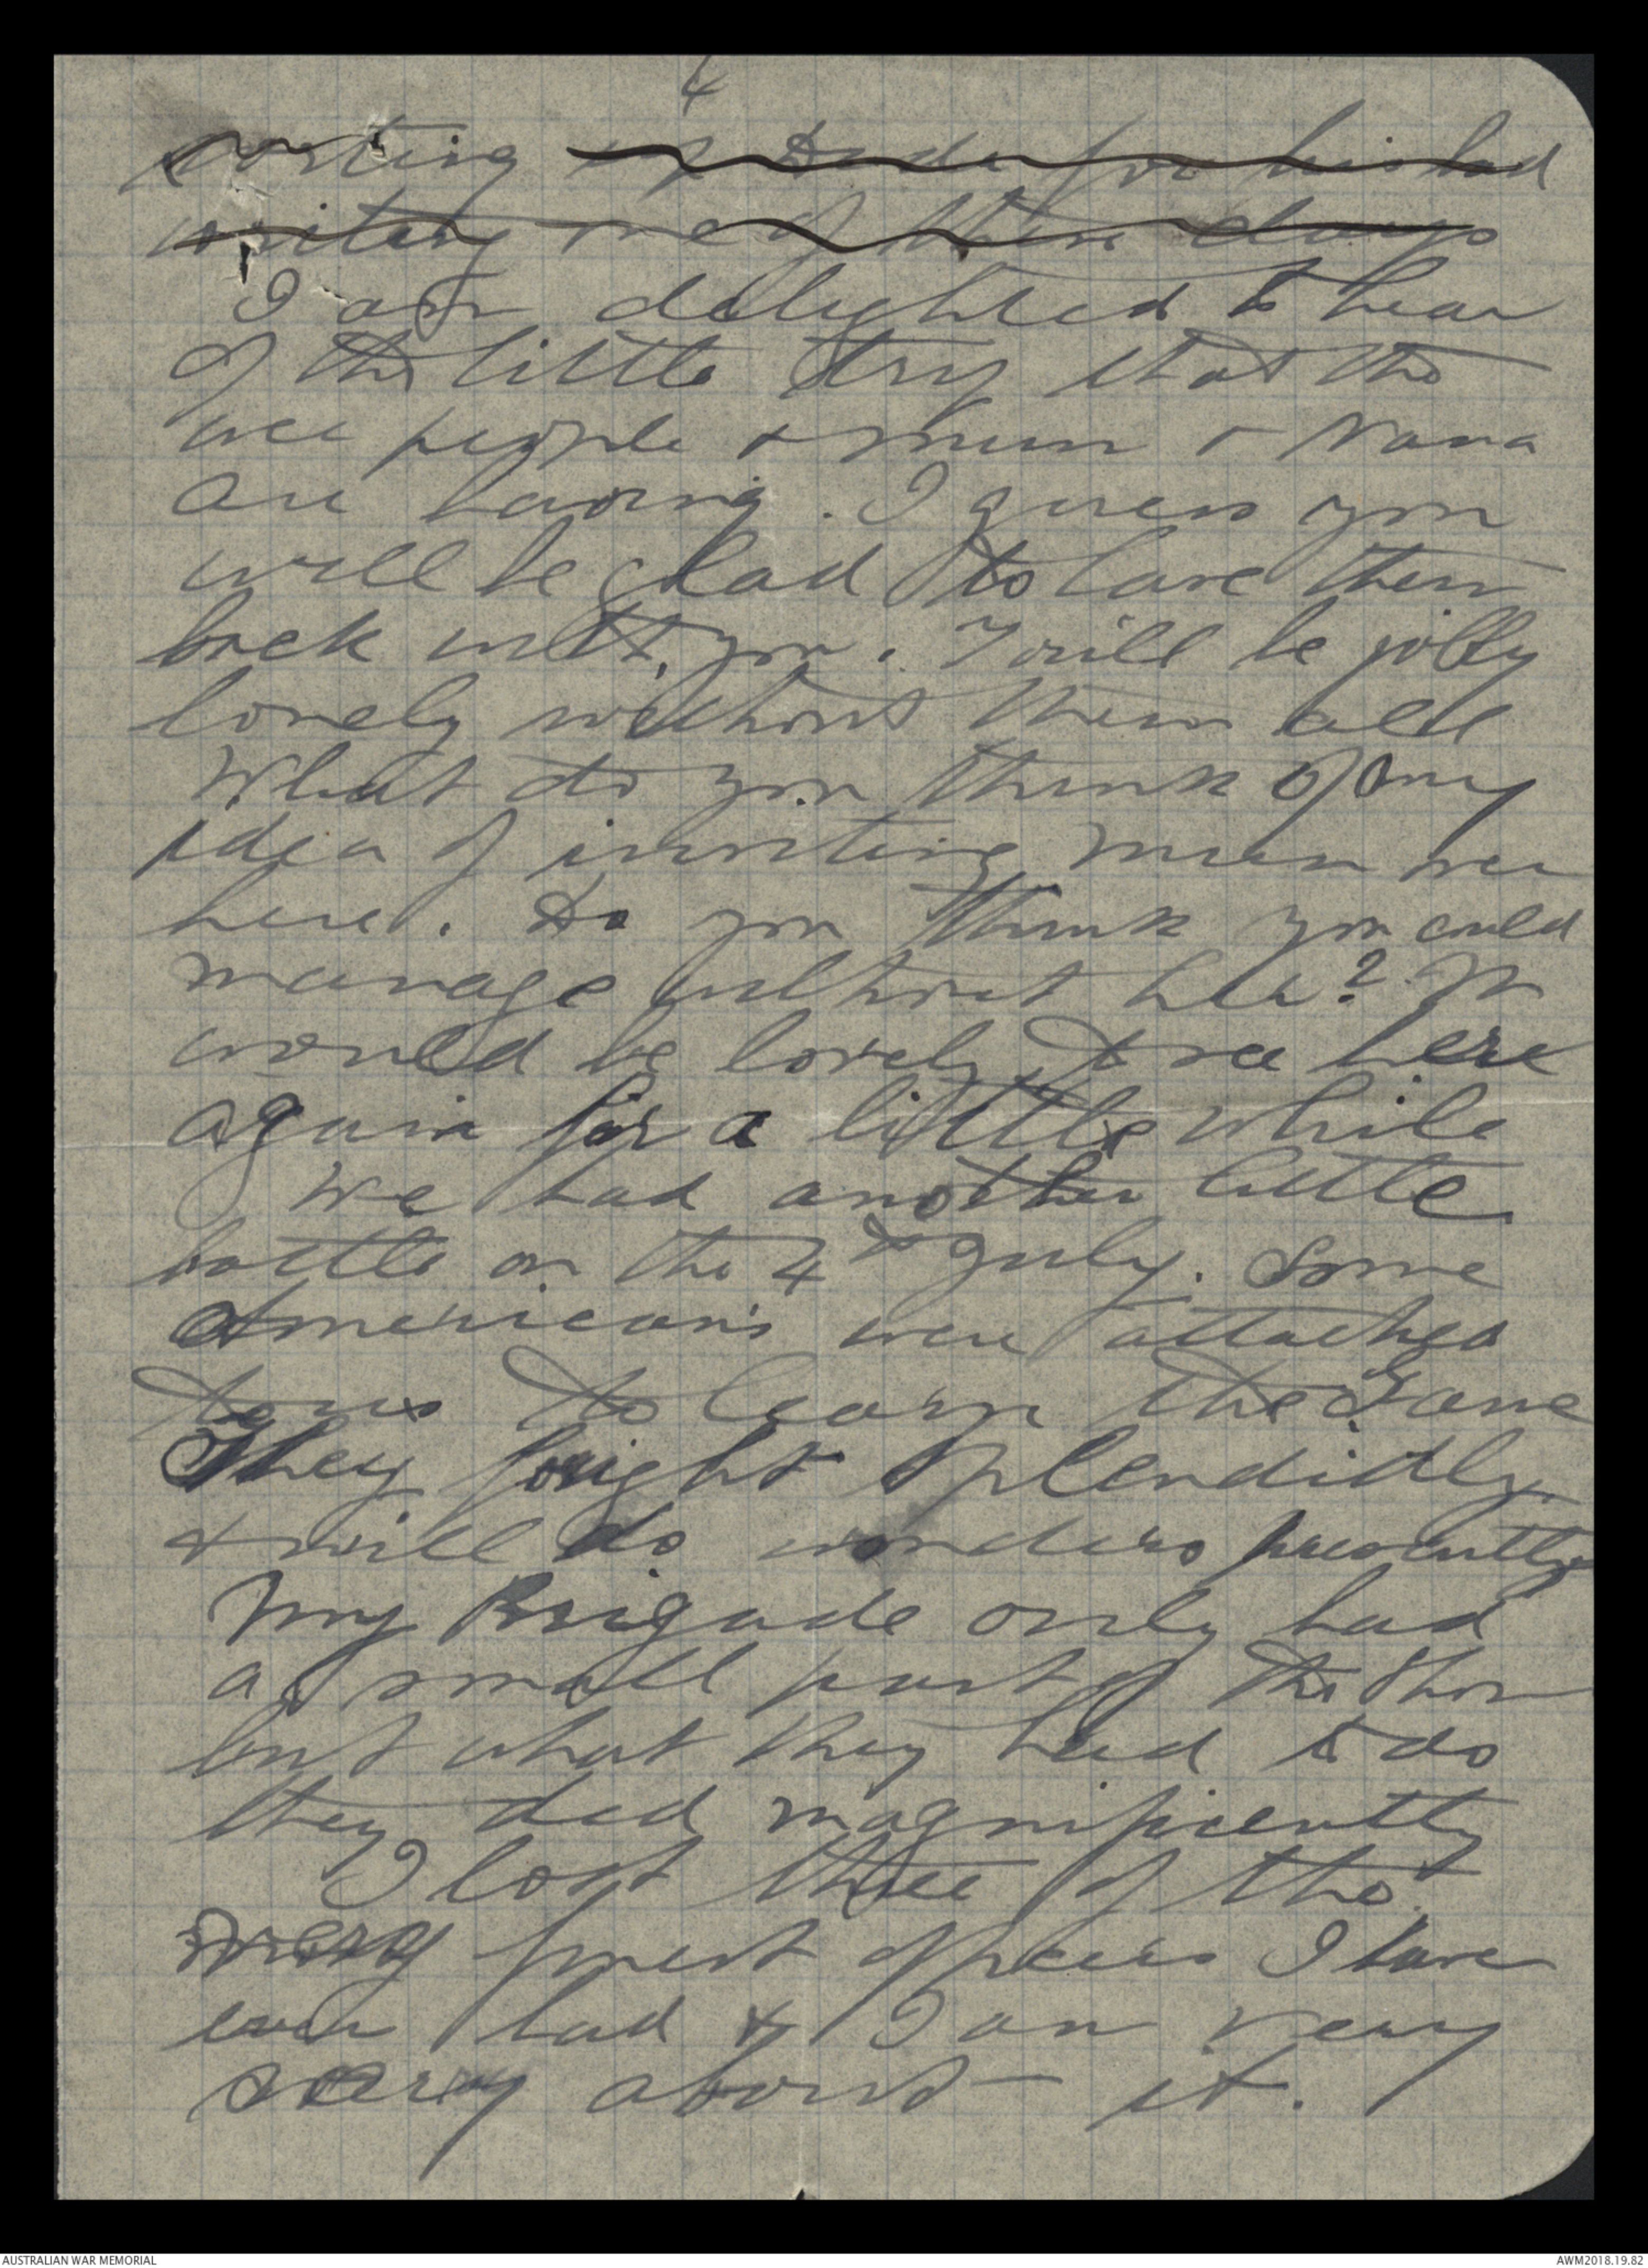 4
posting up Dad for his bad
writing one of these days
I am delighted to hear
of the little trip that the
wee people & mum & Nana
are having. I guess you
will be glad to have them
back with you. Twill be jolly
lonely without them all
What do you think of my
idea of inviting mum over
here. Do you think you could
manage without her? It
would be lovely to see here
again for a little while
We had another little
battle on the 4th July. Some
American's were attached
to us to learn the Game
They fought splendidly
& will do wonders presently
My Brigade only had
a small part of the show
but what they had to do
they did magnificently
I lost three of the
very finest officers I have
ever had & I am very
sorry about it.
AUSTRALIAN WAR MEMORIAL
AWM2018.19.82